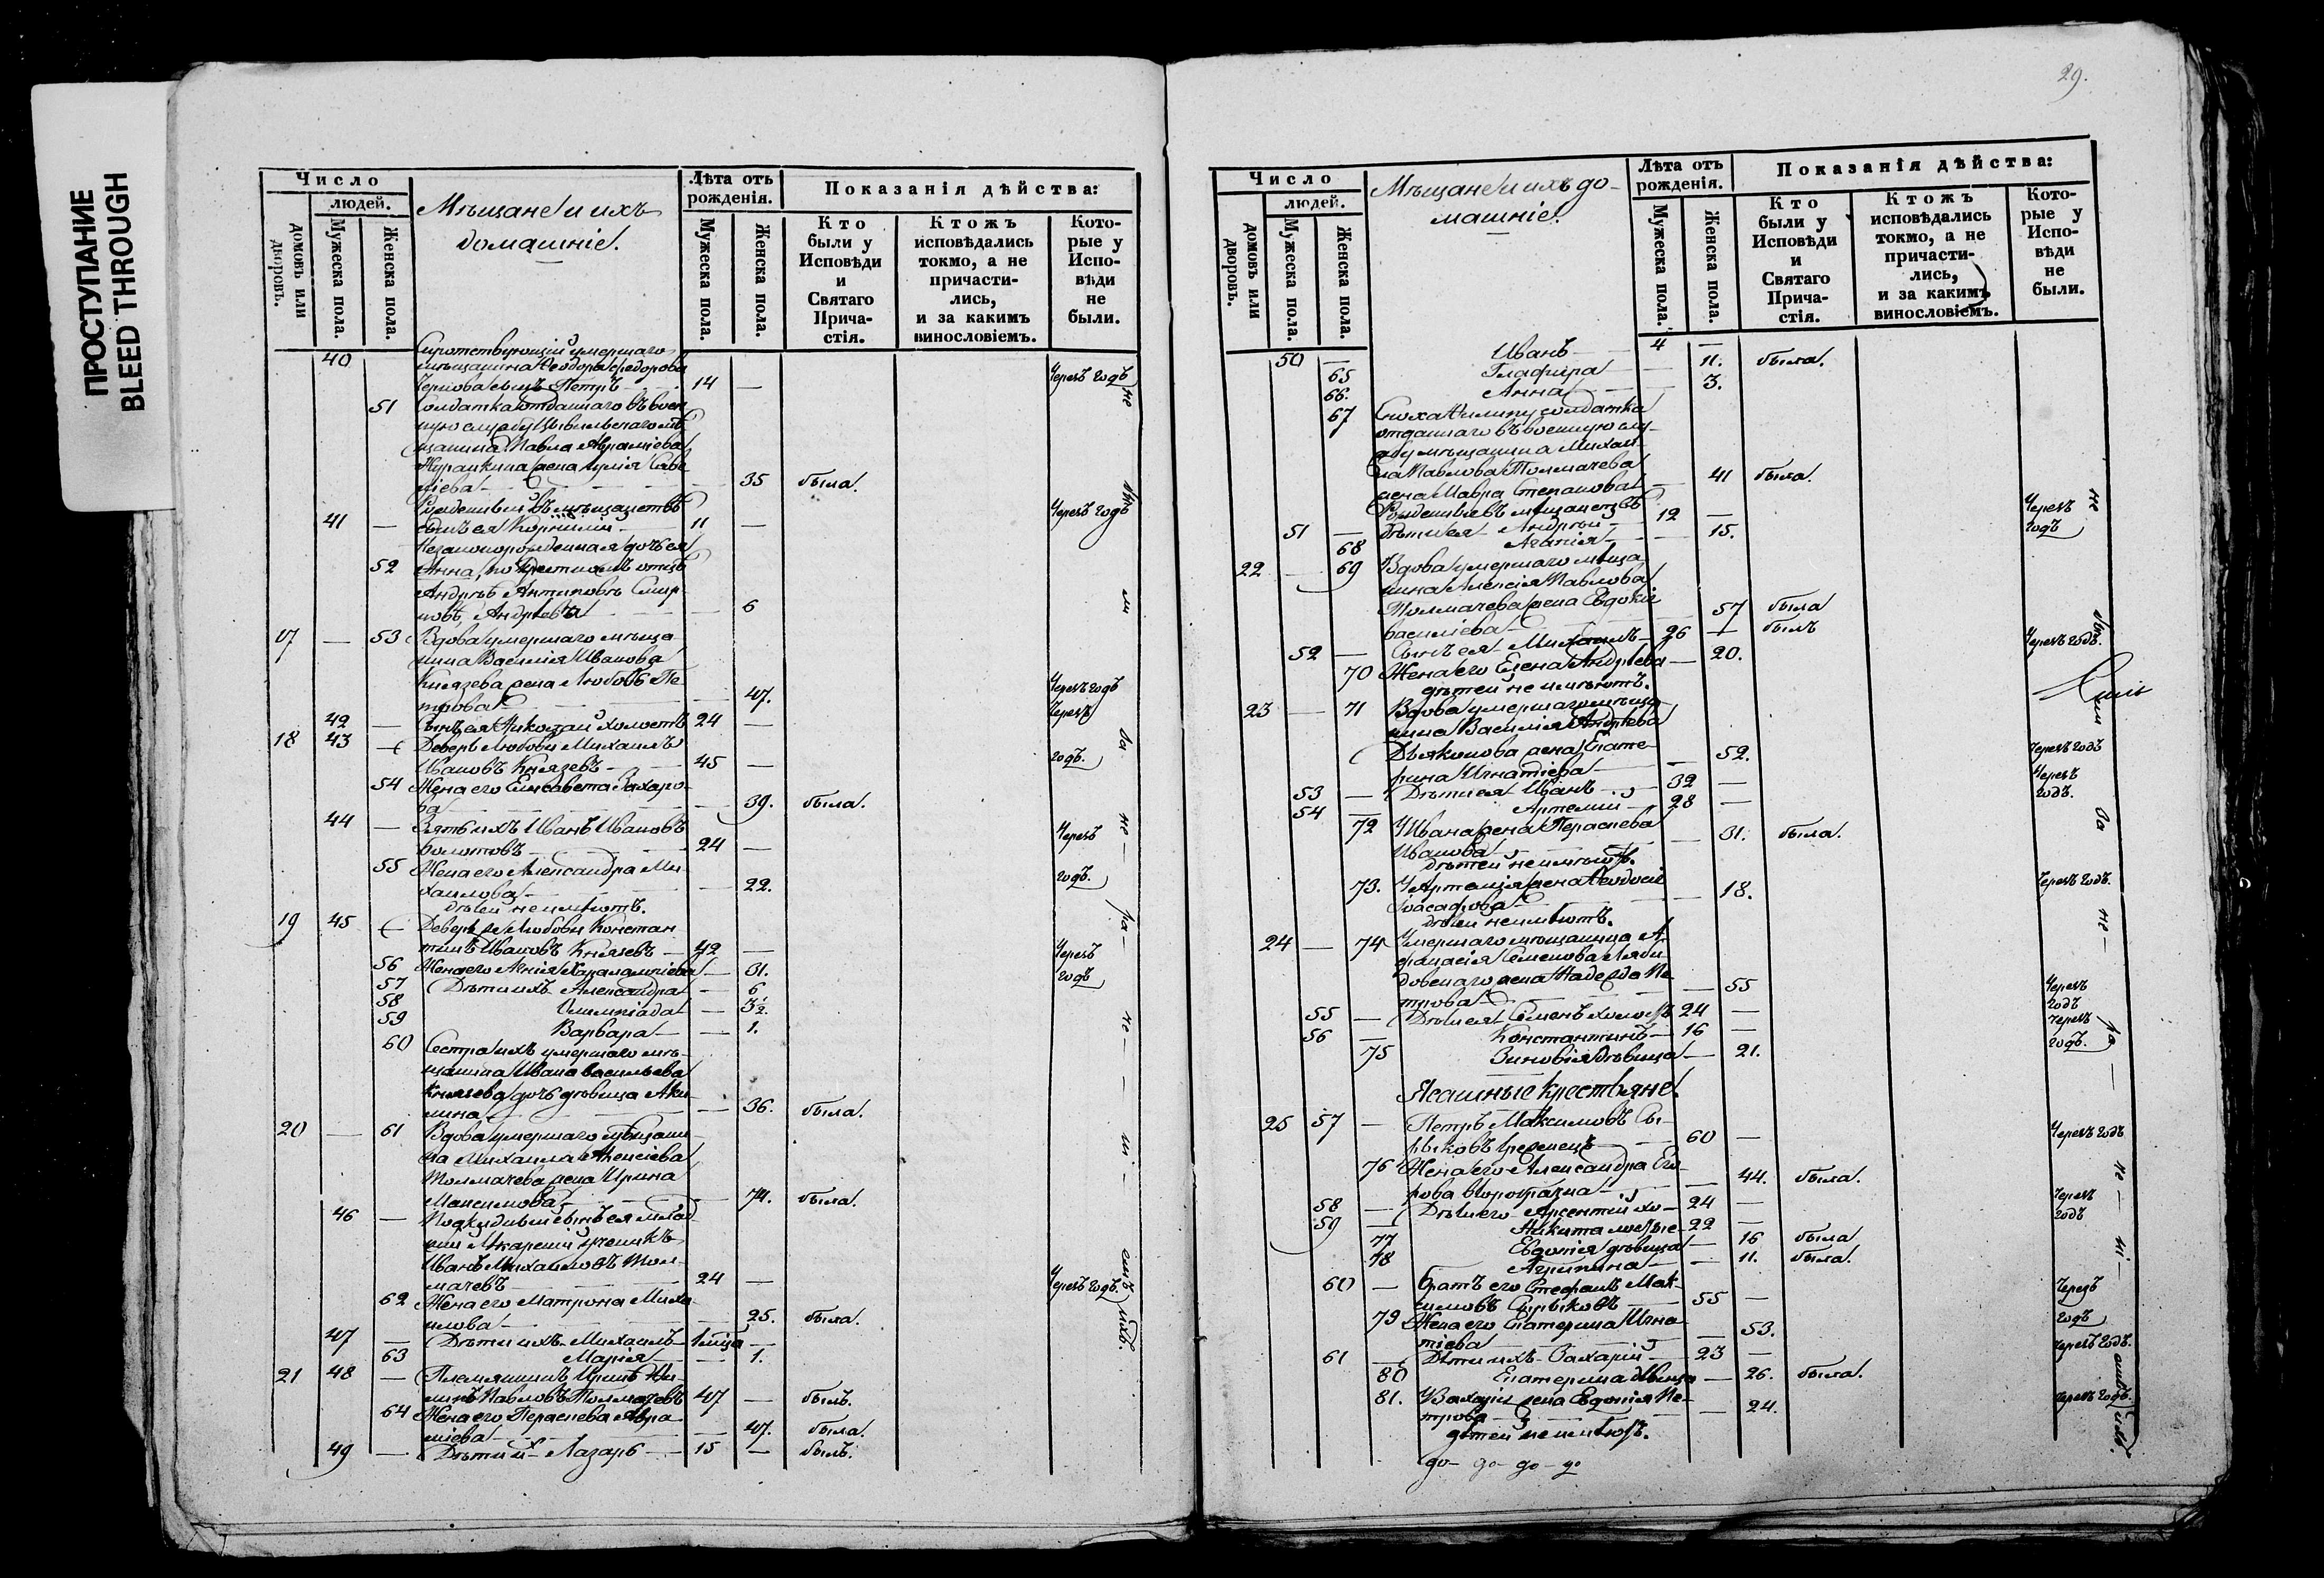 ПРОСТУПАНИЕ
BLEED THROUGH
Число
людей.
домовъ или дворовъ.
Мужеска пола.
Женска пола.
Мѣщане и ихъ
домашніе.
Лѣта отъ
рожденія.
Мужеска пола.
Женска пола.
Показанія дѣйства:
Кто
были у
Исповѣди
и
Святаго
Прича-
стія.
Ктожъ
исповѣдались
токмо, а не
причасти-
лись,
и за какимъ
винословіемъ.
Кото-
рые у
Испо-
вѣди
не
были.
40 умершаго
мѣщанина Феодора Федорова
сынъ Петръ 14 — Чрезъ годъ
51 Солдатка отданнаго въ воен
ную службу Цывильскаго мѣ
щанина Павла Авраміева
жена
35 была.
въ мѣщанствѣ
41 — сынъ ея Корнилій 11 — Чрезъ годъ
Незаконорожденная дочь ея
52 Анна, по крестномъ отцѣ
Андрѣѣ Антиповѣ Смир
новѣ, Андрѣева — 6
17 — 53 Вдова умершаго мѣща
нина Василія Иванова
Князева жена Любовь Пе-
трова 47. Чрезъ годъ
42 — Сынъ ея Николай холостъ 24 — Чрезъ
18 43 — Деверь Любови Михаилъ
Ивановъ Князевъ 45 — годъ.
54 Жена его Елисавета Захаро-
ва 39. была.
44 — Зять ихъ Иванъ Ивановъ
Болотовъ 24 — Чрезъ
55 Жена его Александра Ми-
хаилова 22. годъ.
дѣтей неимѣютъ.
19 45 — Деверь же Любови Констан
тинъ Ивановъ Князевъ — 42 — Чрезъ
56 Жена его Агнія Харалампіева — 31. годъ
57 Дѣти ихъ Александра — 6
58 Олимпіада — 3½.
59 Варвара — 1.
60 Сестра ихъ умершаго мѣ-
щанина Ивана Васильева
Князева дочь дѣвица Аки
лина — 36. была.
20 — 61 Вдова умершаго мѣщани-
на Михаила Алексіева
Толмачева жена Ирина
Максимова 74. была.
46 —
Иванъ Михаиловъ Тол
мачевъ 24 — Чрезъ годъ.
62 Жена его Матрона Миха
илова 25. была.
47 — Дѣти ихъ Михаилъ — 1 мѣся —
63 Марія — 1.
21 48 — Племянникъ Иринѣ Фи-
липъ Павловъ Толмачевъ 47 — былъ.
64 Жена его Параскева Авра
міева — 47. была.
49 — Дѣти их Лазарь 15 — былъ.
29.
Число
людей.
домовъ или дворовъ.
Мужеска пола.
Женска пола.
Мѣщане и ихъ до-
машніе.
Лѣта отъ
рожденія.
Мужеска пола.
Женска пола.
Показанія дѣйства:
Кто
были у
Исповѣди
и
Святаго
Прича-
стія.
Ктожъ
исповѣдались
токмо, а не
причасти-
лись,
и за какимъ
винословіемъ.
Кото-
рые у
Испо-
вѣди
не
были.
50 — Иванъ 4 —
65 Глафира — 11. была.
66. Анна — 3.
67 Сноха Филипу солдатка
отданнаго въ военную слу-
жбу мѣщанина Михаи-
ла Павлова Толмачева
жена Мавра Степанова 41 была.
въ мѣщанствѣ Чрезъ
51 — Дѣти ея Андрѣй 12 — годъ
68 Агапія — 15.
22 — 69 Вдова умершаго мѣща
нина Алексія Павлова
Толмачева жена Евдокія
Василіева 57 была
52 — Сынъ ея Михаилъ 26 — былъ
70 Жена его Елена Андрѣева — 20. Чрезъ годъ.
дѣтей не имѣютъ.
23 — 71 Вдова умершаго мѣща
нина Василія Андрѣева
Дьяконова жена Екате-
рина Игнатіева — 52. Чрезъ годъ
53 — Дѣти ея Иванъ 32 — Чрезъ
54 — Артемій 28 — годъ.
72 У Ивана жена Параскева
Иванова 31. была.
дѣтей неимѣютъ.
73. У Артемія жена Феодосія
Іоасафова — 18. Чрезъ годъ.
дѣтей неимѣютъ.
24 — 74 Умершаго мѣщанина А-
фанасія Семенова
жена Надежда Пе
трова — 55 Чрезъ
55 — Дѣти ея Семенъ холостъ 24 — годъ
56 — Константинъ 16 — Чрезъ
75 Зиновія дѣвица — 21. годъ.
Ясашные Крестьяне.
25 57 — Петръ Максимовъ Сы-
рыковъ 60 — Чрезъ годъ
76 Жена его Александра Его-
рова второбрачна 44. была.
58 — Дѣти его Арсентій хо- 24 — Чрезъ
59 — Никита лостые 22 — годъ
77 Евдокія дѣвица — 16 была
78 Агрипина — 11. была.
60 — Братъ его Стефанъ Мак-
симовъ Сырыковъ 55 — Чрезъ
79 Жена его Екатерина Игна-
тіева — 53. годъ
61 — Дѣти ихъ Захарій 23 — Чрезъ годъ.
80 Екатерина дѣвица — 26. была.
81. У Захарія жена Евдокія Пе-
трова — 24. Чрезъ годъ.
дѣтей не имѣютъ.